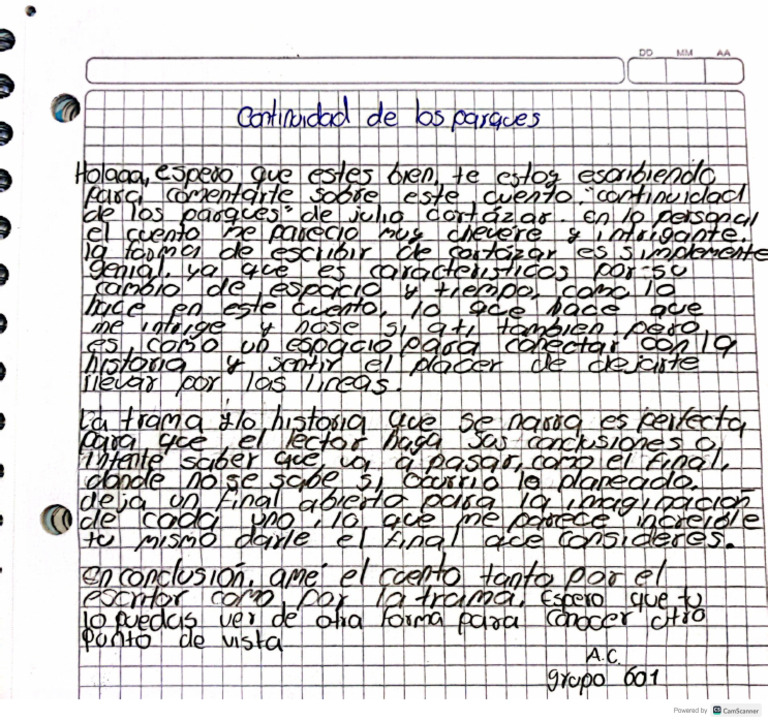 DD MM AA
Continuidad de los parques
Holaaa, espero que estes bien, te estoy escribiendo
para comentarte sobre este cuento "continuidad
de los parques" de julio cortázar. en lo personal
el cuento me parecio muy chevere y intrigante.
la forma de escribir de cortázar es simplemente
genial, ya que es caracteristicos por su
cambio de espacio y tiempo, como lo
hace en este cuento, lo que hace que
me intrige y nose si a ti tambien, pero
es, como un espacio para conectar con la
historia y sentir el placer de dejarte
llevar por las lineas.
La trama y lo historia que se narra es perfecta
para que el lector haga sus conclusiones o
intente saber que va a pasar, como el final,
donde no se sabe si ocurrio lo planeado.
deja un final abierto para la imaginación
de cada uno, lo que me parece increible
tu mismo darle el final que consideres.
En conclusión, amé el cuento tanto por el
escritor como por la trama. Espero que tu
lo puedas ver de otra forma para conocer otro
punto de vista
A.C.
grupo 601
Powered by CS CamScanner